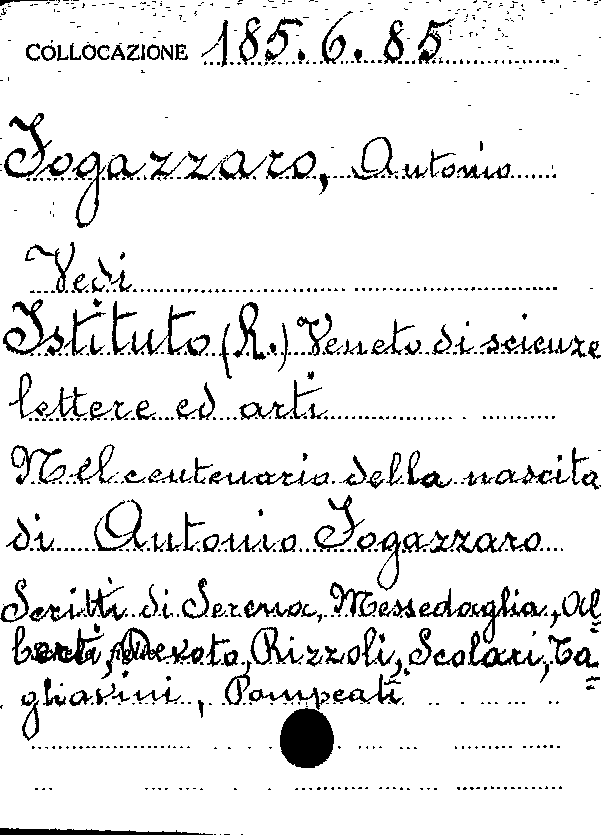 COLLOCAZIONE 185.6.85
Fogazzaro, Antonio
Vedi
Istituto (R.) Veneto di scienze
lettere ed arti
Nel centenario della nascita
di Antonio Fogazzaro
Scritti di Serena, Messedaglia, Al=
berti, Devoto, Rizzoli, Scolari, Ta=
gliavini, Pompeati